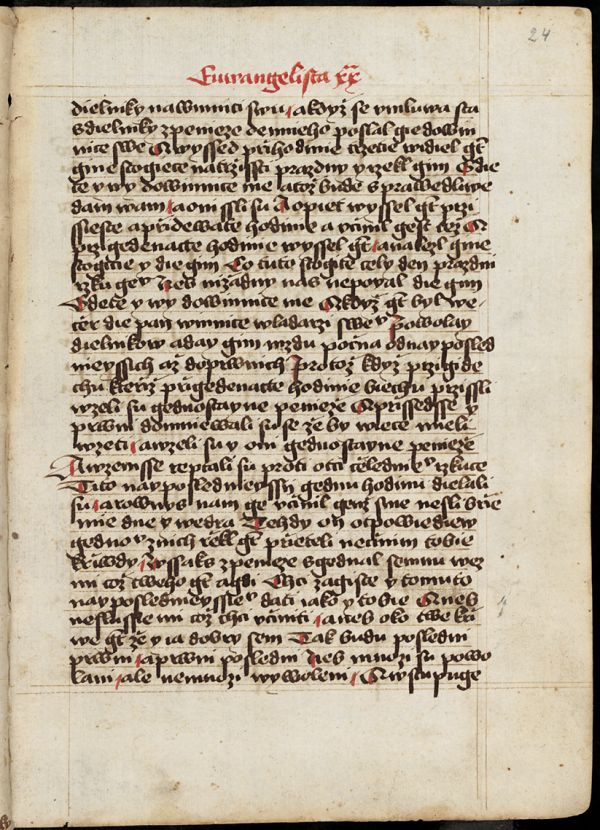 24
Euwangelista xx
dielniky nawinnici swu / akdyż se vmluwa sta
s dielniky zpenieze denneho poslal gie dowin
nice swe A wyssed przi hodinie trzetie widiel gt
gine stogiece natrzissti prazdny y rzekl gim Gdie
te y wy dowinnice me atoż bude sprawedliwe
dam wam / aoni ssli su A opiet wyssel gt przi
ssieste a przi dewate hodinie a vcinil gest tez A
przi gedenacte hodinie wyssel gt / analezl gine
stogiecie y die gim Co tuto stogite cely den prazdni
rzku gemu Neb nizadny nas nepoyal die gim
Gdete y wy dowinnice me A kdyż gt byl we-
cer die pan winnice wladarzi swemu Powolay
dielnikow aday gim mzdu pocna odnayposled
nieyssich aż doprwnich Protoż kdyż przigide
chu kteriż przi gedenacte hodinie biechu przissli
wzeli su gednostayne penieze A prissedsse y
prwni domniewali su se że by wiece mieli
wzeti / awzeli su y oni gednostayne penieze
A wzemsse reptali su proti otci celednemu rzkuce
Tito nayposlednieyssij gednu hodinu dielali
su / arownys nam ge vcinil genż sme nesli brie
mie dne y wedra Tehdy on otpowiediew
gednomu znich rzekl gt prieteli necinim tobie
kriwdy / Wssaks zpenieze sgednal semnu wez
mi coż tweho gt agdi Chci zagiste y tomuto
nayposlednieyssiemu dati iako y tobie A neb
neslussie mi coż chci vciniti / aneb oko twe kri
we gt że y ia dobry sem Tak budu posledni
prwni / aprwni poslednij Neb mnozi su powo
lani / ale nemnozi wywoleni / A wstupuge